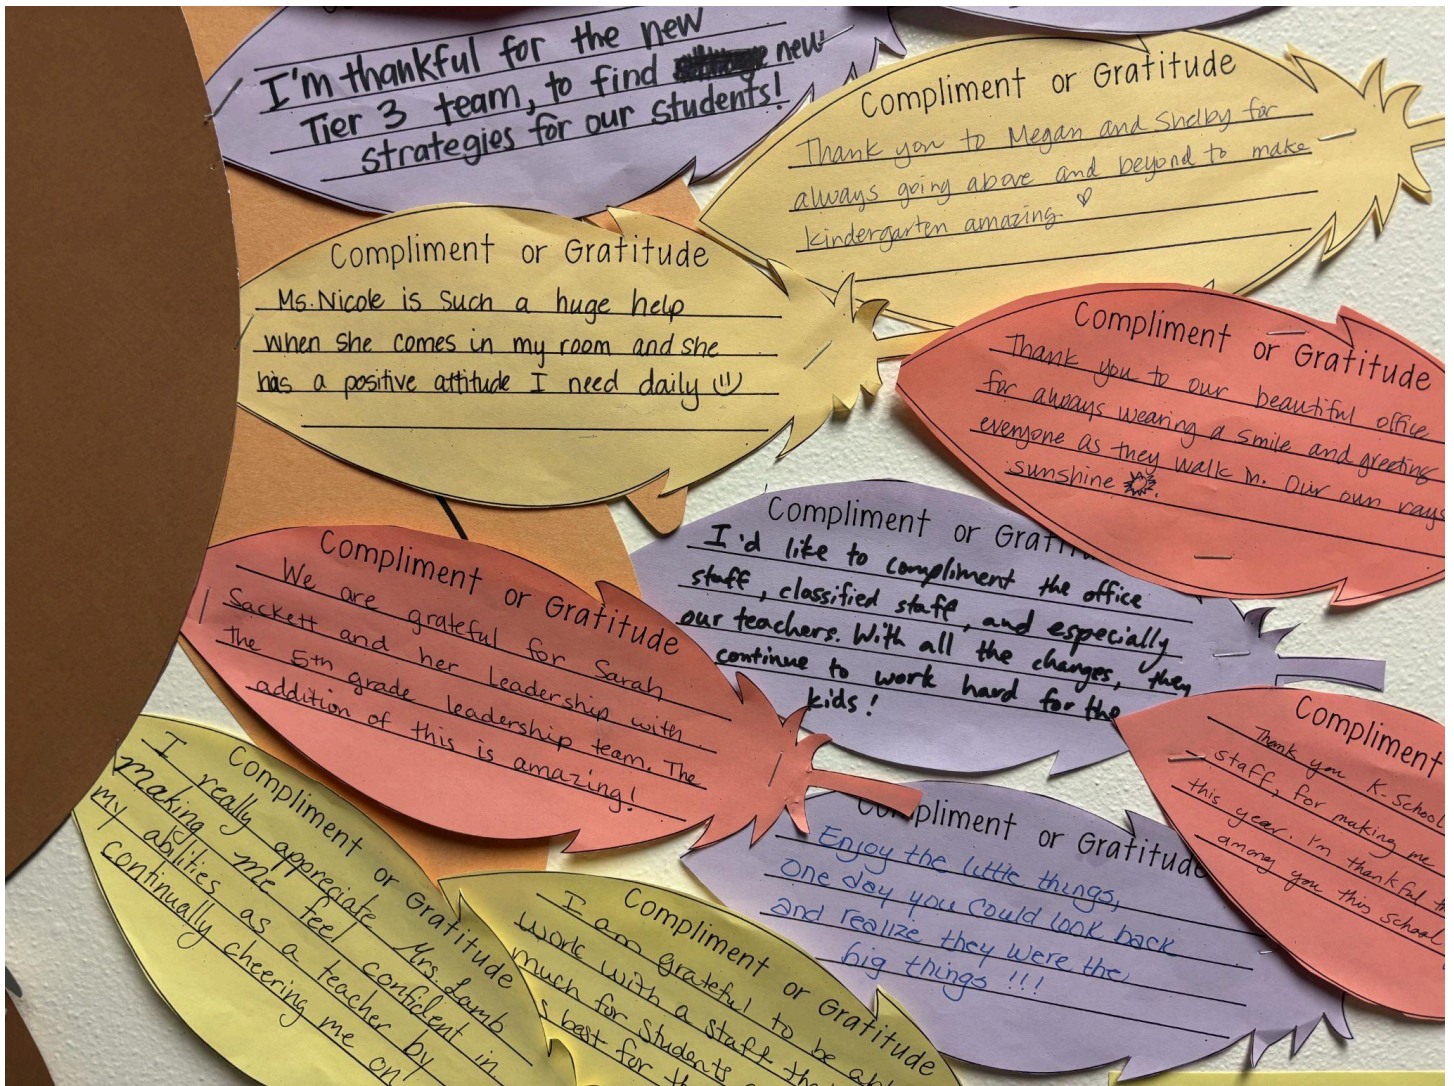 I'm thankful for the new
Tier 3 team, to find new
strategies for our students!
Compliment or Gratitude
Thank you to Megan and Shelby for
always going above and beyond to make
kindergarten amazing.
Compliment or Gratitude
Ms. Nicole is such a huge help
when she comes in my room and she
has a positive attitude I need daily
Compliment or Gratitude
Thank you to our beautiful office
for always wearing a smile and greeting
everyone as they walk in. Our own rays
sunshine
Compliment or
I'd like to compliment the office
staff, classified staff, and especially
our teachers. With all the changes, they
continue to work hard for the
kids!
Compliment or Gratitude
We are grateful for Sarah
Sackett and her leadership with
the 5th grade leadership team. The
addition of this is amazing!
Compliment
Thank you K. School
staff, for making me
this year. I'm thankful
among you this school
Compliment or Gratitude
Enjoy the little things,
one day you could look back
and realize they were the
big things!!!
Compliment or Gratitude
I really appregiate Mrs. Lamb
making me feel confident in
my abilities as a teacher by
continually cheering me on!
Compliment or Gratitude
I am grateful to be
work with a staff
much for students
best for